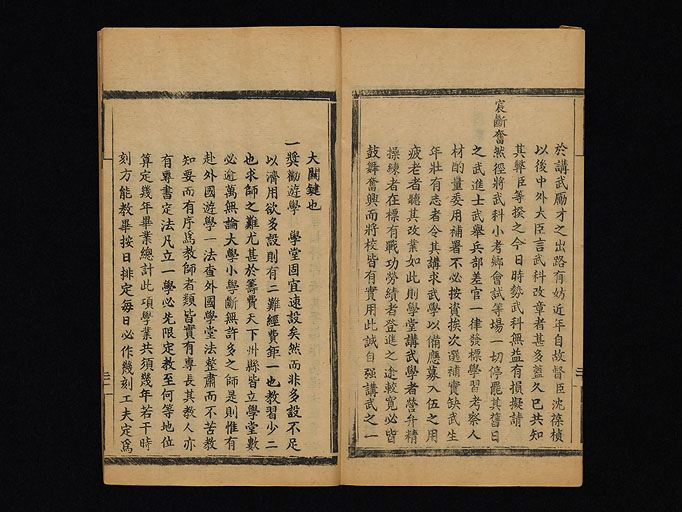 於講武厲才之出路有妨近年自故督臣沈葆楨
以後中外大臣言武科改章者甚多蓋久已共知
其弊臣等揆之今日時勢武科無益有損擬請
宸斷奮然徑將武科小考鄉會試等場一切停罷其舊日
之武進士武舉兵部差官一律發標學習考察人
材酌量委用補署不必按資挨次選補實缺武生
年壯有志者令其講求武學以備應募入伍之用
疲老者聽其改業如此則學堂講武學者營弁精
操練者在標有戰功勞績者登進之途較寬必皆
鼓舞奮興而將校皆有實用此誠自强講武之一
大關鍵也
一獎勸遊學　學堂固宜速設矣然而非多設不足
以濟用欲多設則有二難經費鉅一也教習少二
也求師之難尤甚於籌費天下州縣皆立學堂數
必逾萬無論大學小學斷無許多之師是則惟有
赴外國遊學一法查外國學堂法整肅而不苦教
知要而有序爲教師者類皆實有專長其教人亦
有專書定法凡立一學必先限定教至何等地位
算定幾年畢業總計此項學業共須幾年若干時
刻方能教畢按日排定每日必作幾刻工夫定爲